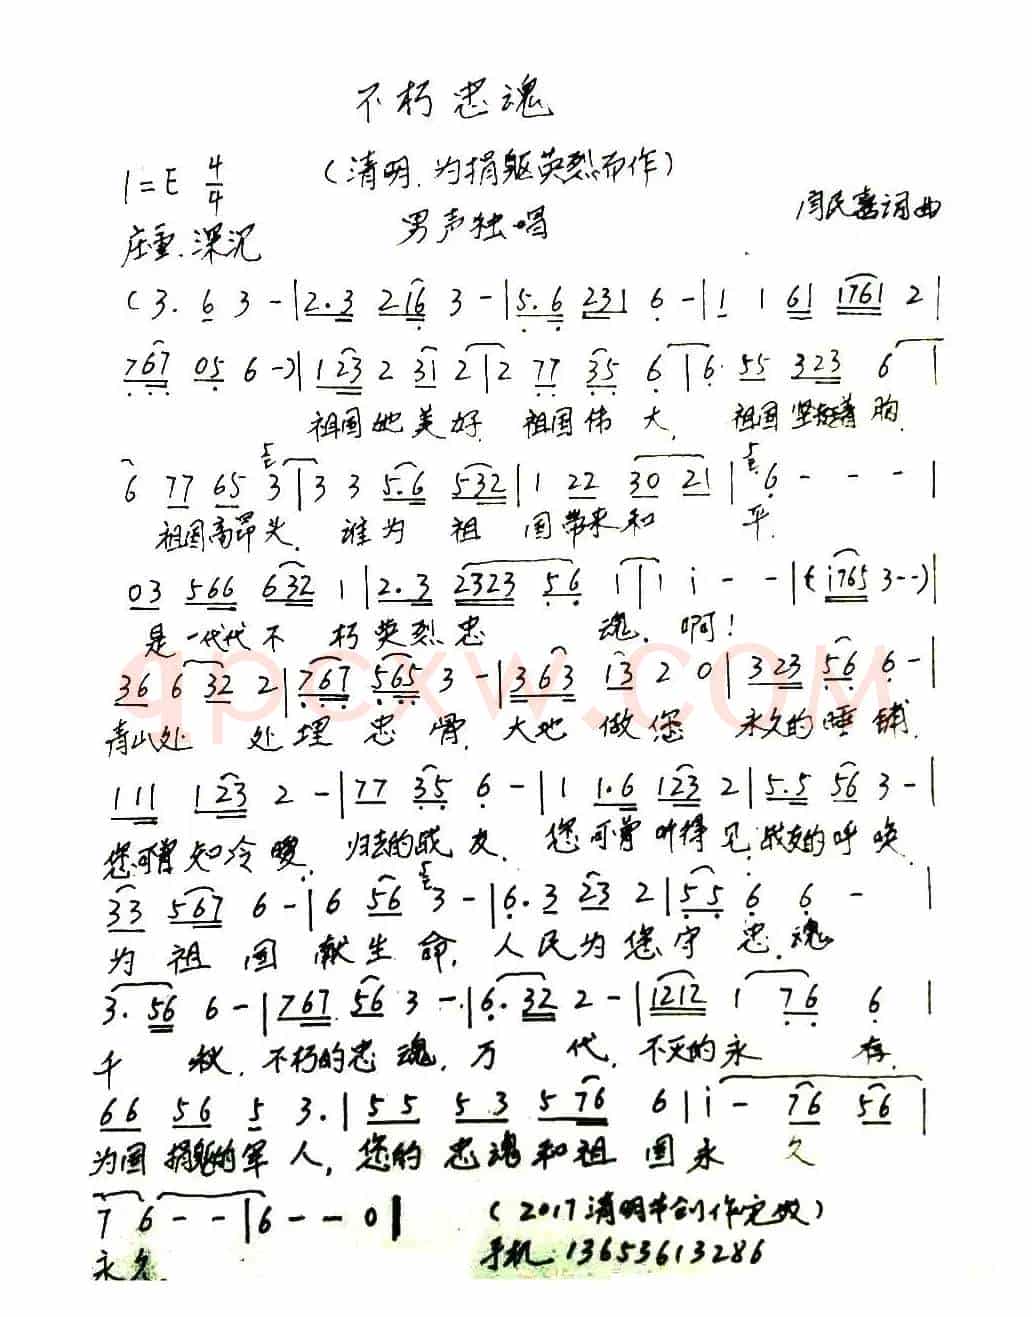 不朽忠魂
(清明.为捐躯英烈而作)
1=E 4/4
男声独唱
闫民喜词曲
庄重.深沉
(3. 6 3 -|2.3 216 3 -|5.6 231 6 -|1 1 61 1761 2|
767 05 6 -)|123 2 31 2|2 77 35 6|6. 55 323 6|
祖国她美好. 祖国伟大, 祖国坚挺着胸.
6 77 65 3|3 3 5.6 532|1 22 30 21|6 - - -|
祖国高昂头. 谁为祖国带来和平.
03 566 632 1|2.3 2323 56 i|1 i - -|(i765 3--)|
是一代代不朽英烈忠魂. 啊!
36 6 32 2|767 565 3 -|363 13 2 0|323 56 6 -|
qpcxw.com
青山处处埋忠骨. 大地做您永久的睡铺.
111 123 2 -|77 35 6 -|1 1.6 123 2|5.5 56 3 -|
您可曾知冷暖. 归去的战友. 您可曾听得见,战友的呼唤.
33 567 6 -|6 56 3 -|6.3 23 2|55 6 6 -|
为祖国献生命, 人民为您守忠魂
3. 56 6 -|767 56 3 -|6. 32 2 -|1212 1 76 6|
千秋, 不朽的忠魂, 万代, 不灭的永存.
66 56 5 3.|55 53 576 6|i - 76 56|
为国捐躯的军人, 您的忠魂和祖国永久
7 6 - -|6 - - 0|
(2017清明节创作完毕)
永久.
手机 13653613286